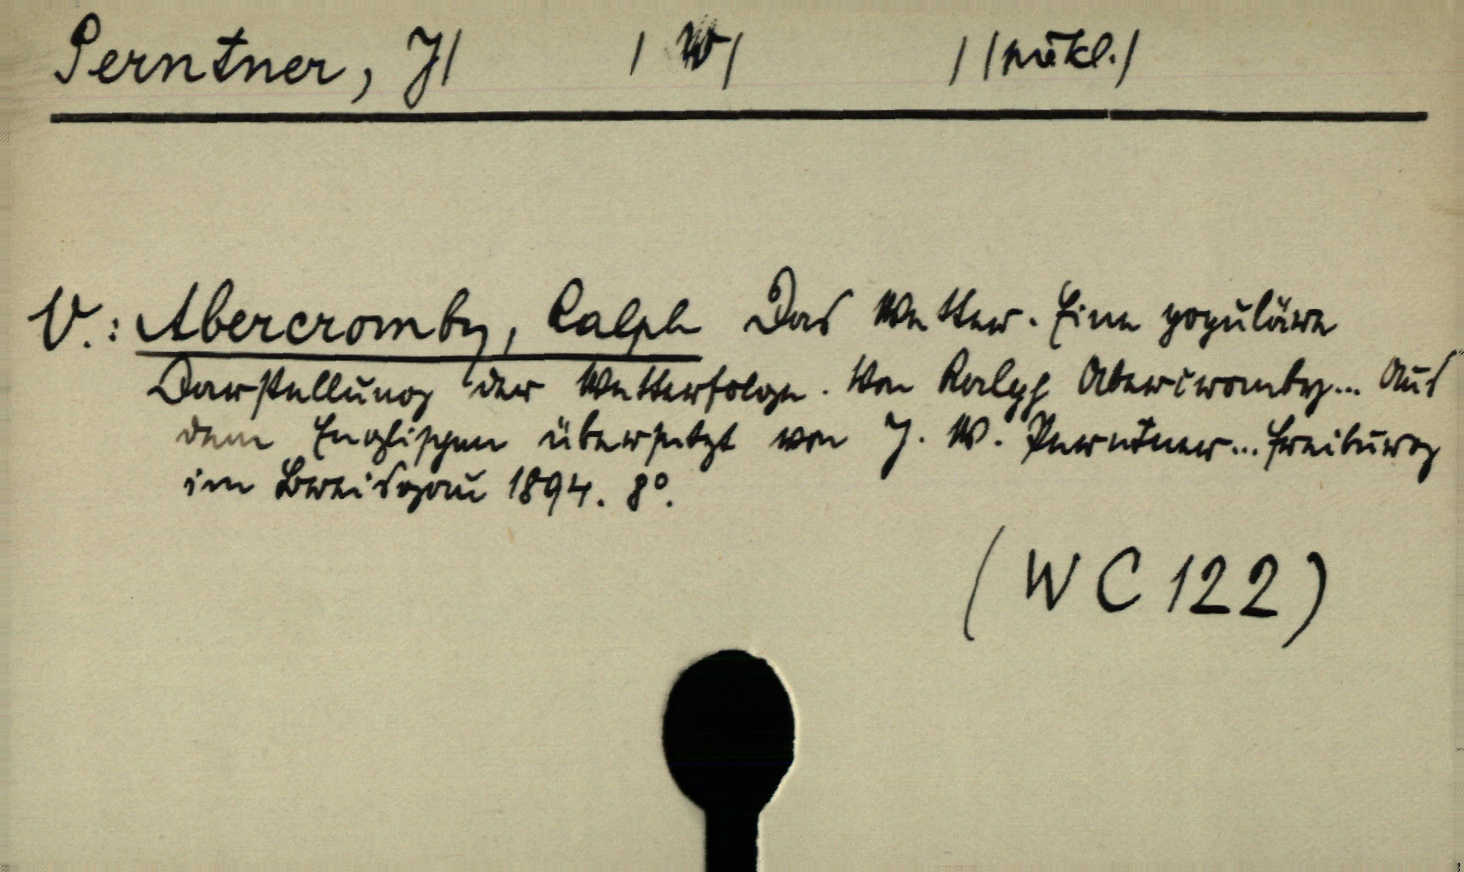 Perntner, J/ / W / / /překl./
V.: Abercromby, Ralph Das Wetter. Eine populäre
Darstellung der Wetterfolge. Von Ralph Abercromby... Aus
dem Englischen übersetzt von J. W. Perntner... Freiburg
im Breisgau 1894. 8°.
(WC 122)